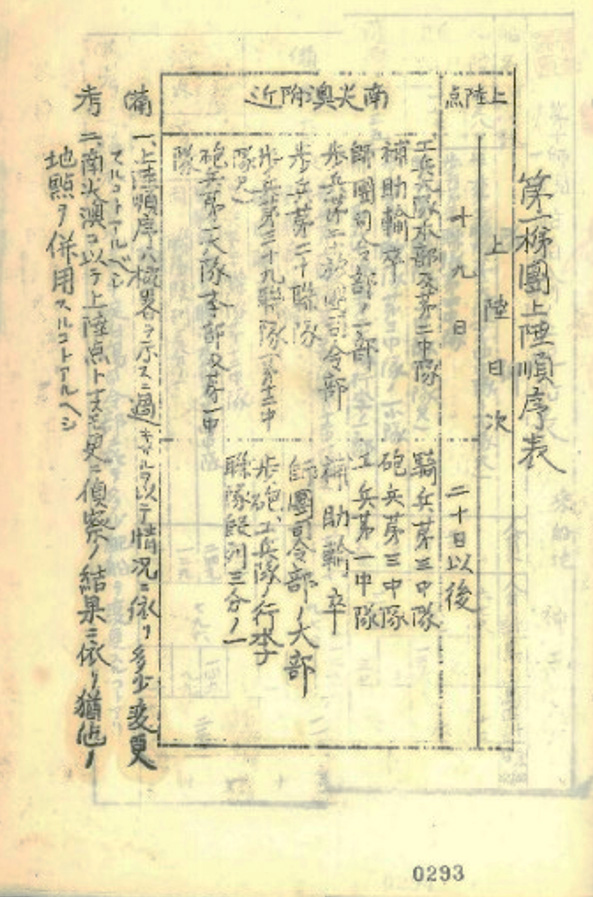 第一梯團上陸順序表
上陸点
上陸日次
十九日
二十日以後
南尖澳附近
工兵大隊本部及第二中隊
補助輸卒
師團司令部ノ一部
歩兵第二十旅團司令部
歩兵第二十聯隊
歩兵第三十九聯隊(第十二中
隊欠)
砲兵第一大隊本部及第一中
隊
騎兵第三中隊
砲兵第三中隊
工兵第一中隊
補助輸卒
師團司令部ノ大部
歩、砲、工兵隊ノ行李
聯隊段列三分ノ一
備考
一、上陸順序ハ概畧ヲ示スニ過キサルヲ以テ情況ニ依リ多少変更
スルコトアルベシ
二、南尖澳ヲ以テ上陸点ト定ムモ更ニ偵察ノ結果ニ依リ猶他ノ
地點ヲ併用スルコトアルヘシ
0293